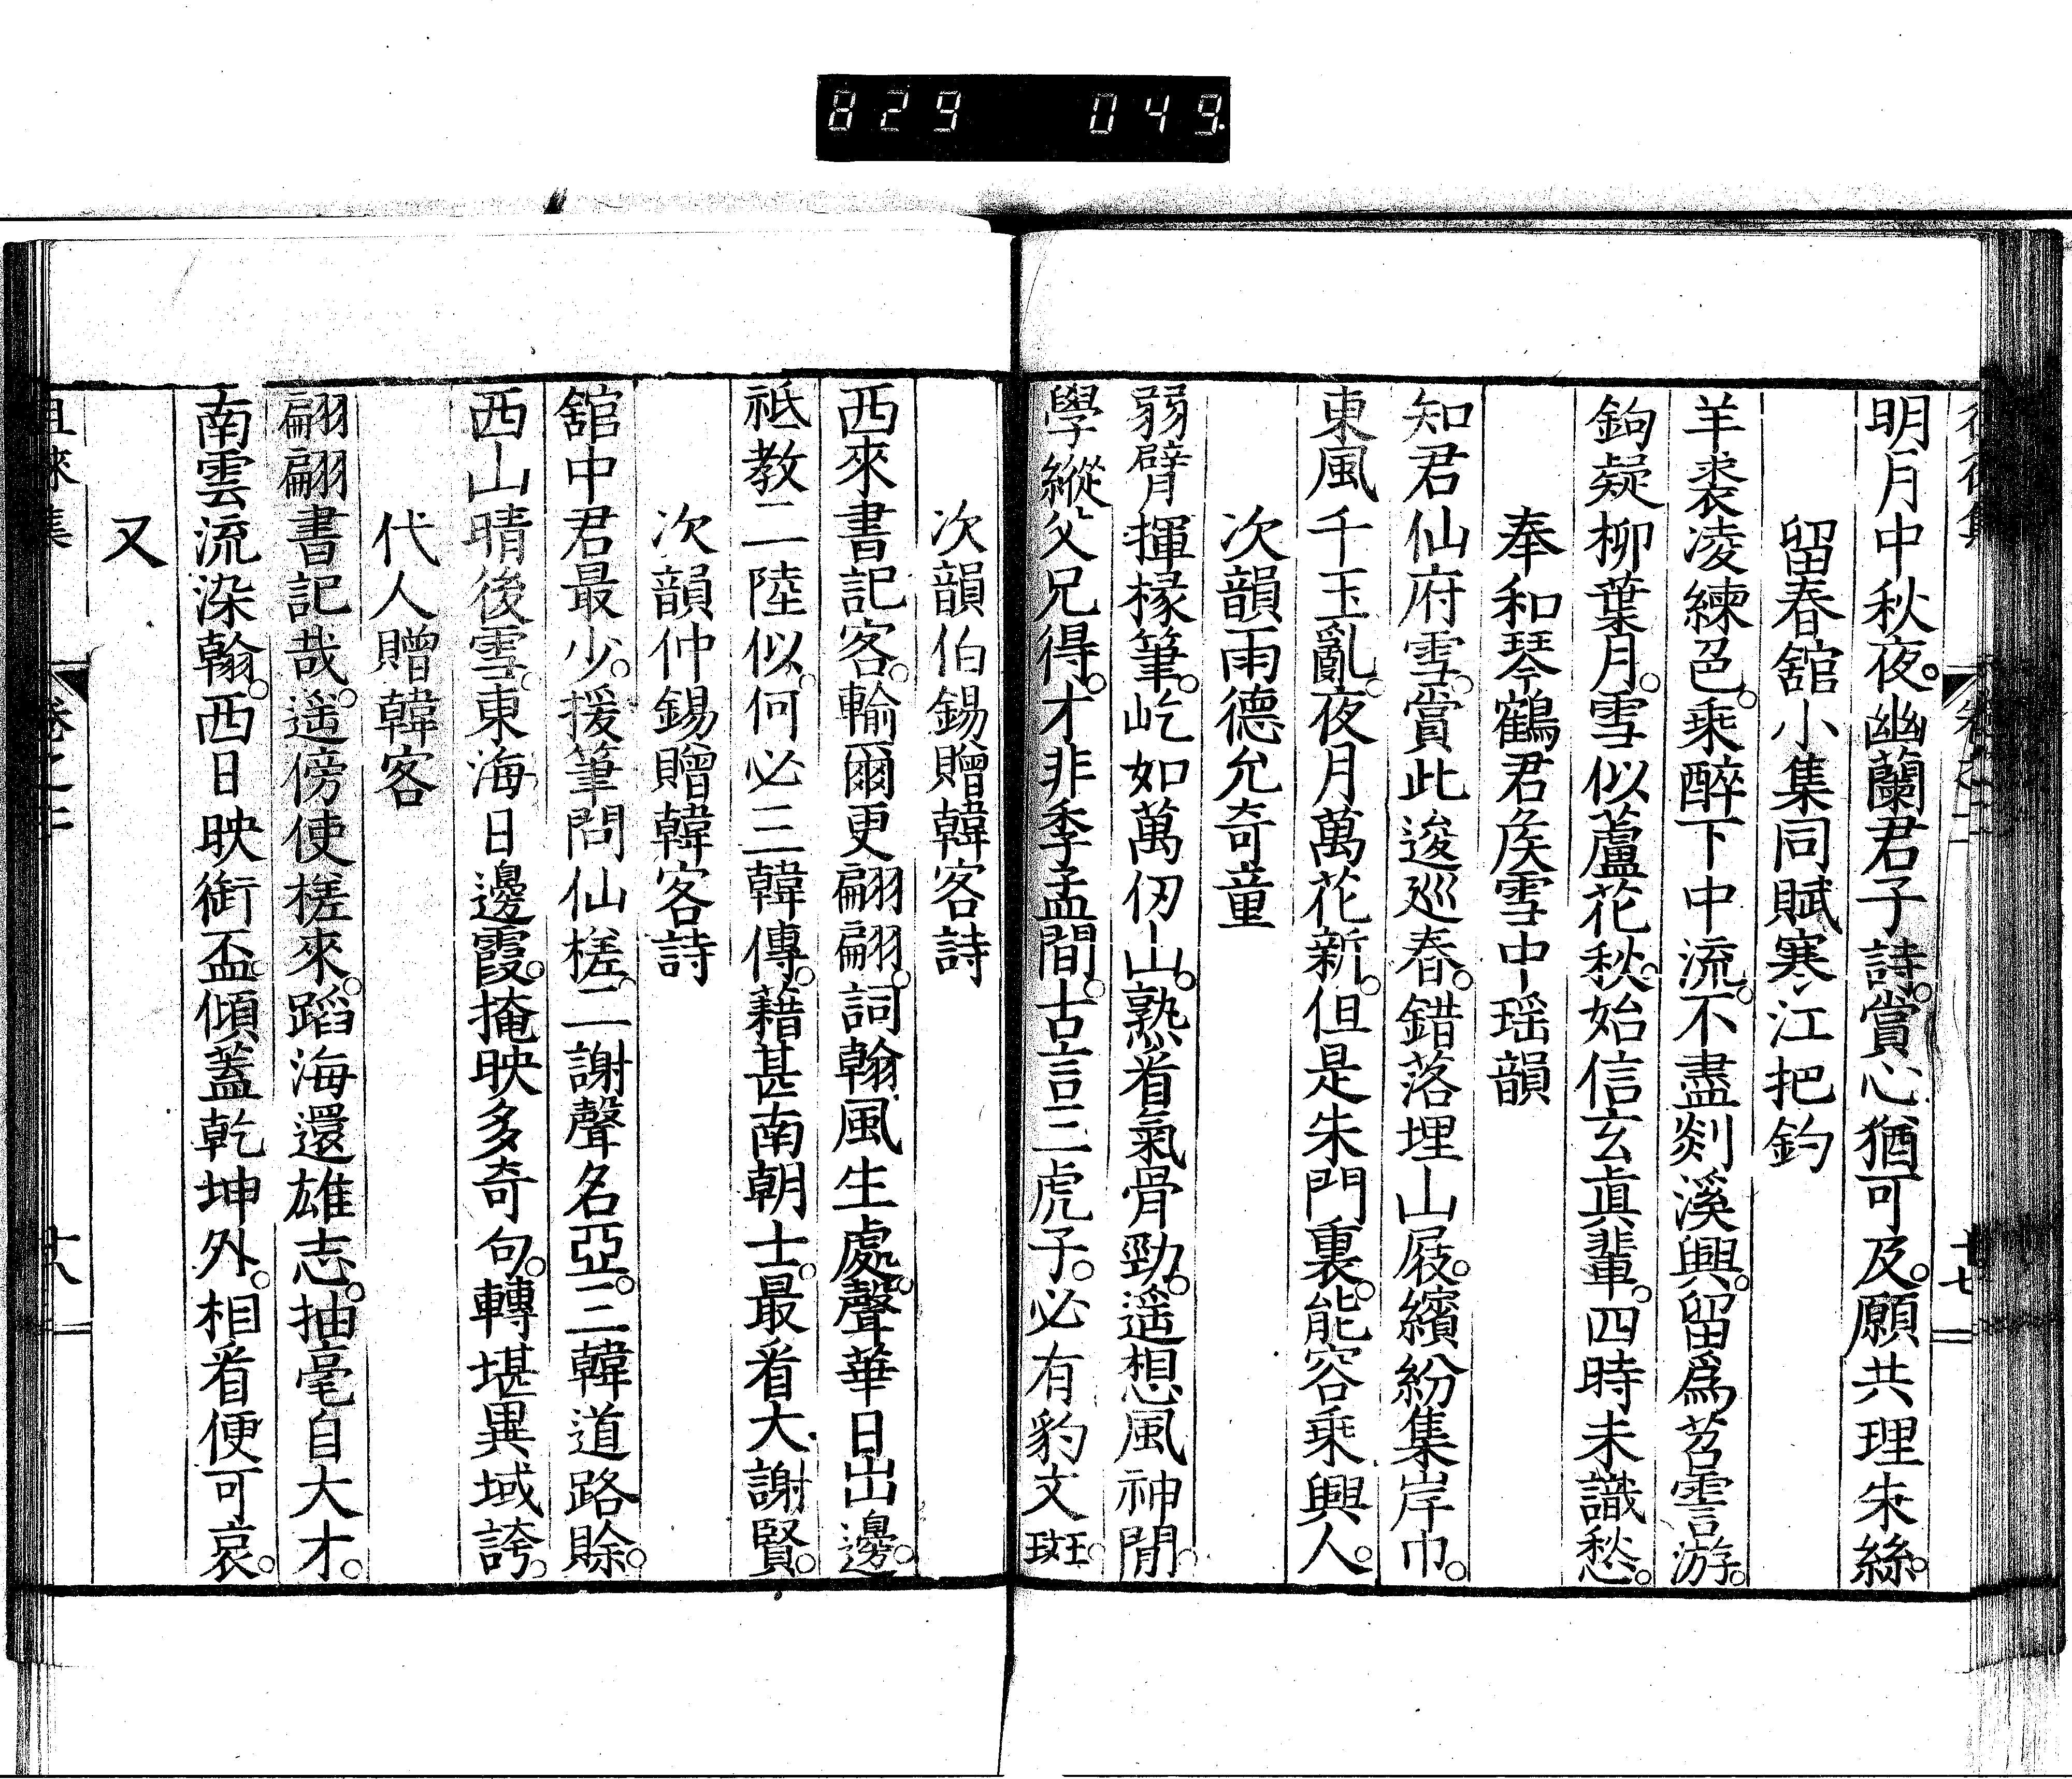 829 049
明月中秋夜。幽蘭君子詩。賞心猶可及。願共理朱絲。
留春舘小集同賦寒江把釣
羊裘凌練色。乘醉下中流。不盡剡溪興。留爲苕霅游。
鉤疑柳葉月。雪似蘆花秋。始信玄眞輩。四時未識愁。
奉和琴鶴君矦雪中瑶韻
知君仙府雪。賞此逡巡春。錯落埋山屐。繽紛集岸巾。
東風千玉亂。夜月萬花新。但是朱門裏。能容乘興人。
次韻雨德允奇童
弱臂揮椽筆。屹如萬仭山。熟看氣骨勁。遥想風神閒。
學縱父兄得。才非季孟間。古言三虎子。必有豹文斑。
次韻伯錫贈韓客詩
西來書記客。輸爾更翩翩。詞翰風生處。聲華日出邊。
祗教二陸似。何必三韓傳。藉甚南朝士。最看大謝賢。
次韻仲錫贈韓客詩
舘中君最少。援筆問仙槎。二謝聲名亞。三韓道路賖。
西山晴後雪。東海日邊霞。掩映多奇句。轉堪異域誇。
代人贈韓客
翩翩書記哉。遥傍使槎來。蹈海還雄志。抽毫自大才。
南雲流染翰。西日映銜盃。傾蓋乾坤外。相看便可哀。
又
徂徠集 卷之二 十八